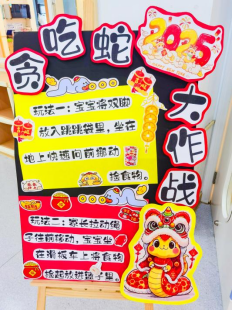 贪吃蛇
2025
大作战
玩法一：宝宝将双脚
放入跳跳袋里，坐在
地上快速向前挪动
捡食物。
玩法二：家长拉动绳
子往前移动，宝宝坐
在滑板车上将食物
捡起放进袋子里